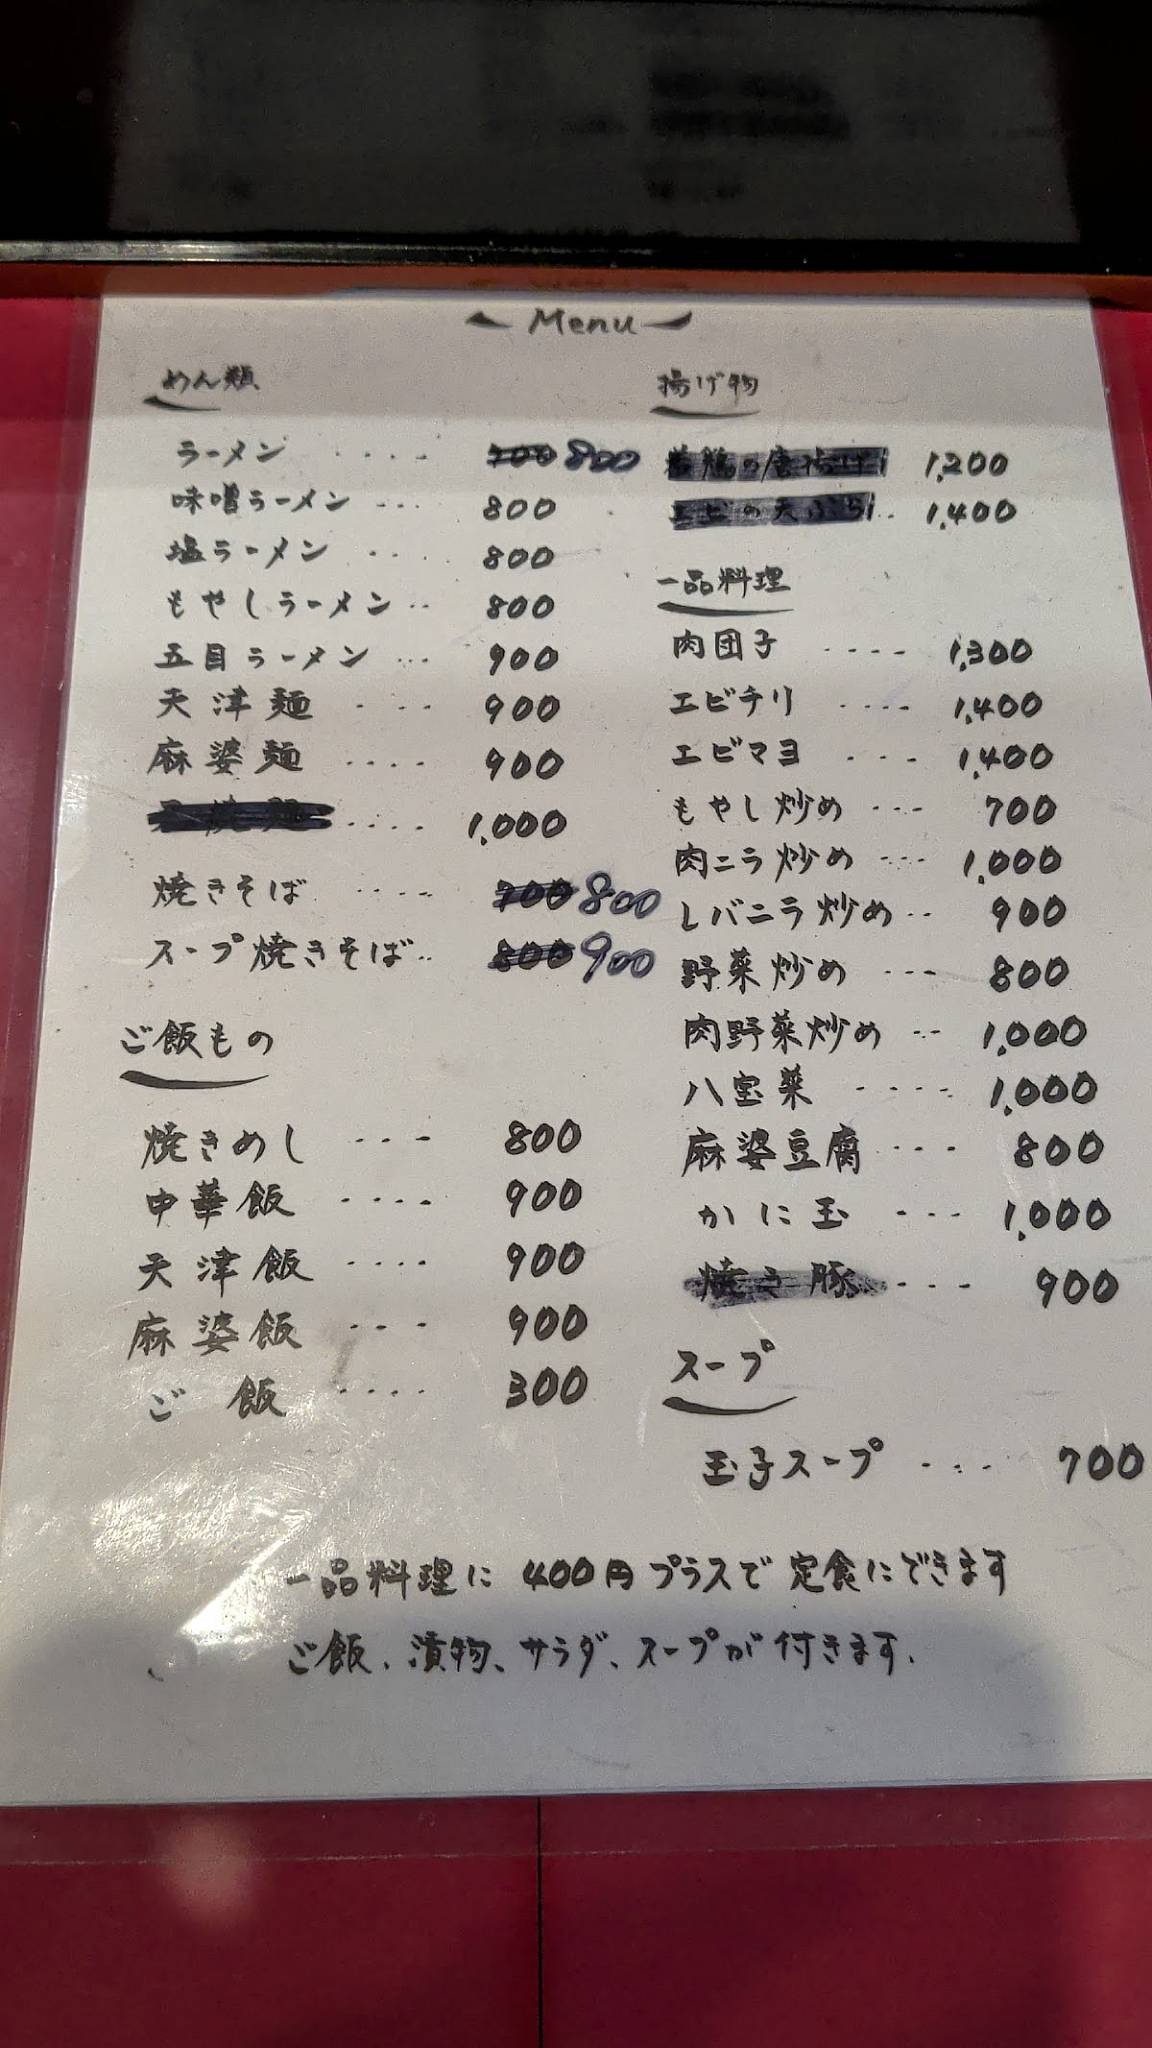 Menu
めん類
ラーメン .... 700 800
味噌ラーメン ... 800
塩ラーメン .... 800
もやしラーメン .. 800
五目ラーメン ... 900
天津麺 .... 900
麻婆麺 .... 900
.... 1,000
焼きそば .... 700 800
スープ焼きそば.. 800 900
ご飯もの
焼きめし ... 800
中華飯 .... 900
天津飯 .... 900
麻婆飯 ... 900
ご飯 .... 300
揚げ物
若鶏の唐揚げ 1,200
エビの天ぷら.. 1,400
一品料理
肉団子 .... 1,300
エビチリ .... 1,400
エビマヨ ... 1,400
もやし炒め ... 700
肉ニラ炒め ... 1,000
レバニラ炒め .. 900
野菜炒め ... 800
肉野菜炒め .. 1,000
八宝菜 .... 1,000
麻婆豆腐 ... 800
かに玉 ... 1,000
焼き豚 ... 900
スープ
玉子スープ .... 700
一品料理に400円プラスで定食にできます
ご飯、漬物、サラダ、スープが付きます.